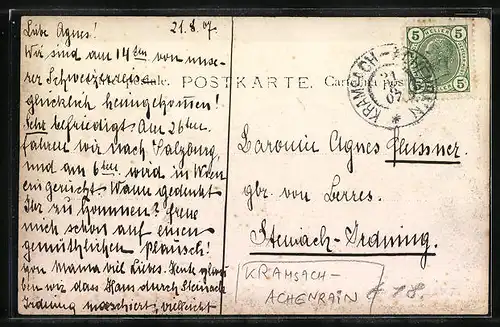 Liebe Agnes! 21.8.07.
Wir sind am 14ten von unse-
rer Schweizerreise
glücklich heimgekommen!
Sehr befriedigt. Am 26ten
fahren wir nach Salzburg,
und am 6ten wird in Wien
eingerückt. Wann gedenkt
Ihr zu kommen? Freue
mich schon auf einen
gemüthlichen Plausch!
von Mama viel Liebes. Heute
ben wir dass Hans durch Steinach
Irdning marschiert, vielleicht
POSTKARTE.
KRAMSACH-ACHENRAIN
21
07
5 5
5 5
Baronin Agnes
gbr. von Berres.
Steinach-Irdning.
KRAMSACH-
ACHENRAIN
€ 18.